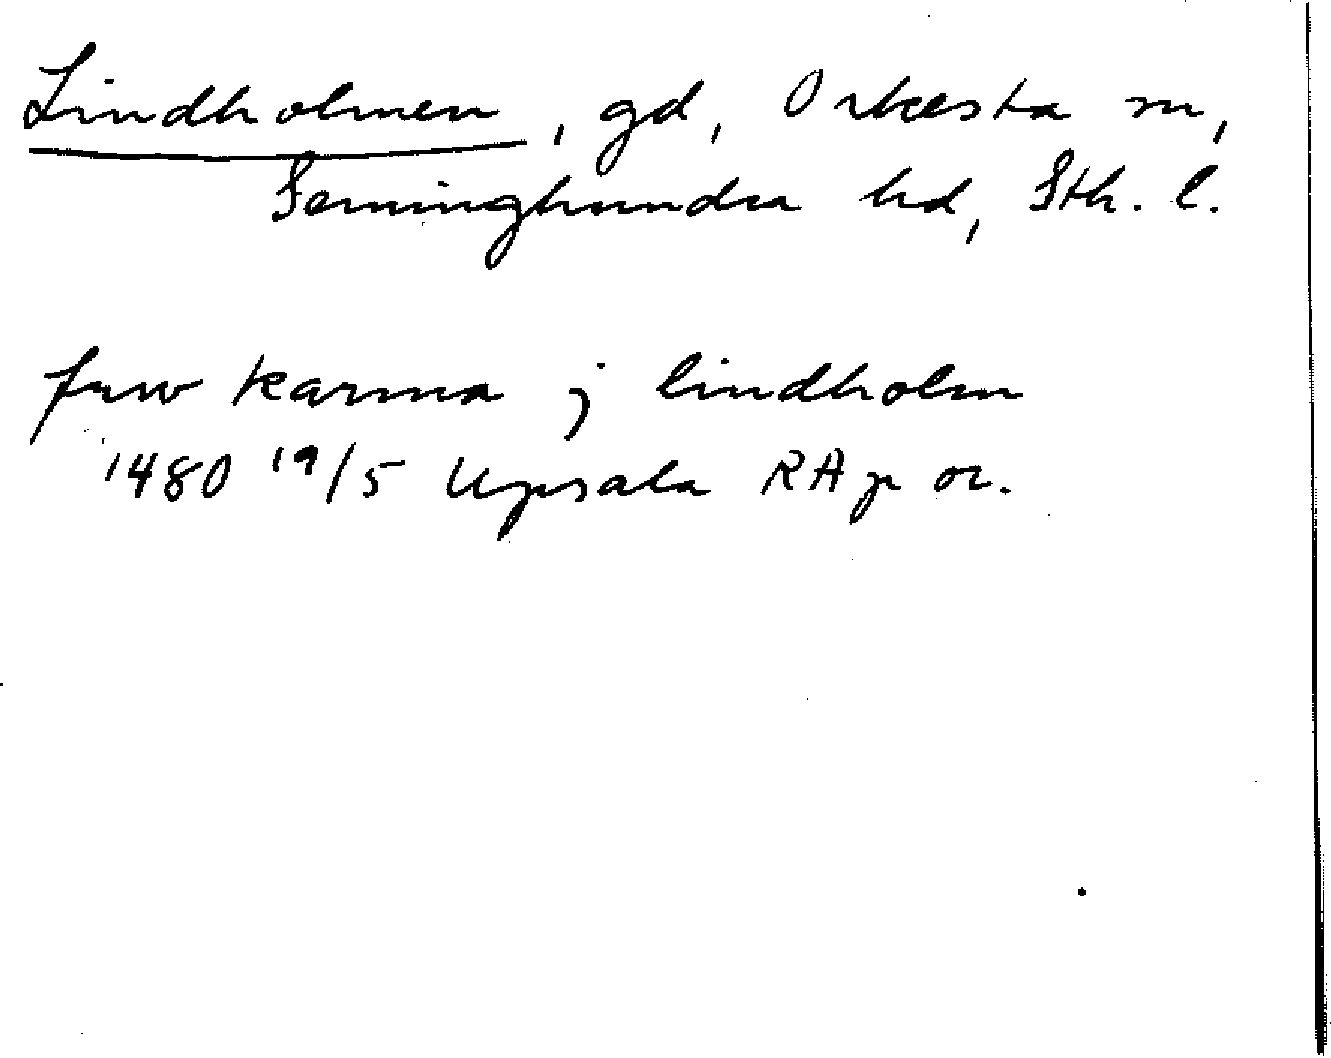 Lindholmen, gd, Orkesta sn,
Seminghundra hd, Sth. l.
frw karina j lindholm
1480 19/5 Upsala RA p or.